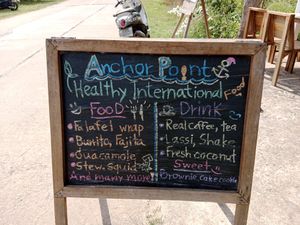 Anchor Point
Healthy International
Food
FOOD
Falafel wrap
Burrito, Fajita
Guacamole
Stew, Squid
And many more
Drink
Real coffee, Tea
Lassi, Shake
Fresh coconut
Sweet
Brownie, Cake, cookie